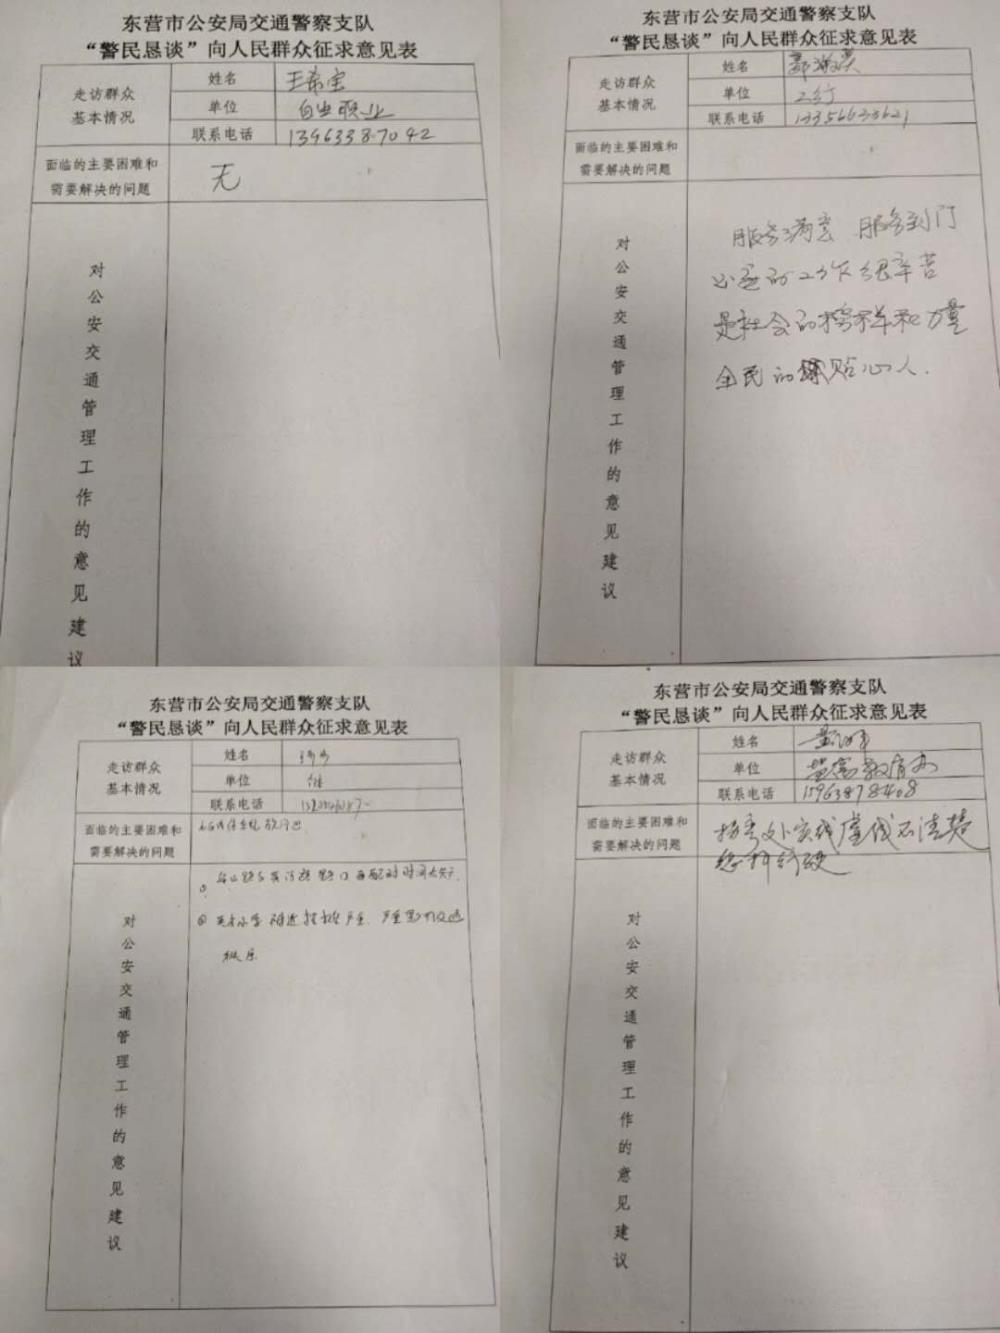 东营市公安局交通警察支队
“警民恳谈”向人民群众征求意见表
走访群众
基本情况
姓名
王希宝
单位
自由职业
联系电话
13963387042
面临的主要困难和
需要解决的问题
无
对公安交通管理工作的意见建议
东营市公安局交通警察支队
“警民恳谈”向人民群众征求意见表
走访群众
基本情况
姓名
单位
工行
联系电话
13356633621
面临的主要困难和
需要解决的问题
对公安交通管理工作的意见建议
服务满意 服务到门
的工作很辛苦
是社会的榜样和力量
全民的贴心人.
东营市公安局交通警察支队
“警民恳谈”向人民群众征求意见表
走访群众
基本情况
姓名
单位
联系电话
面临的主要困难和
需要解决的问题
对公安交通管理工作的意见建议
①
路口 时间
② 英才小学附近 严重. 严重影响交通
秩序
东营市公安局交通警察支队
“警民恳谈”向人民群众征求意见表
走访群众
基本情况
姓名
单位
联系电话
15963878408
面临的主要困难和
需要解决的问题
处实线虚线不清楚
对公安交通管理工作的意见建议